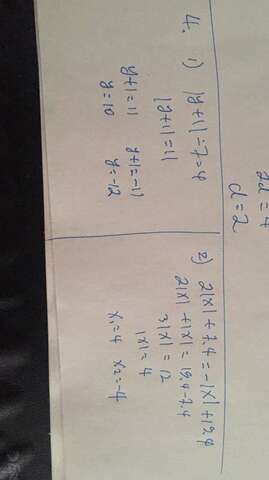 2d=4
d=2
4. 1) |y+1|-7=4
|y+1|=11
y+1=11 y+1=-11
y=10 y=-12
2) 2|x|+7,4=-|x|+19,4
2|x|+|x|=19,4-7,4
3|x|=12
|x|=4
x₁=4 x₂=-4